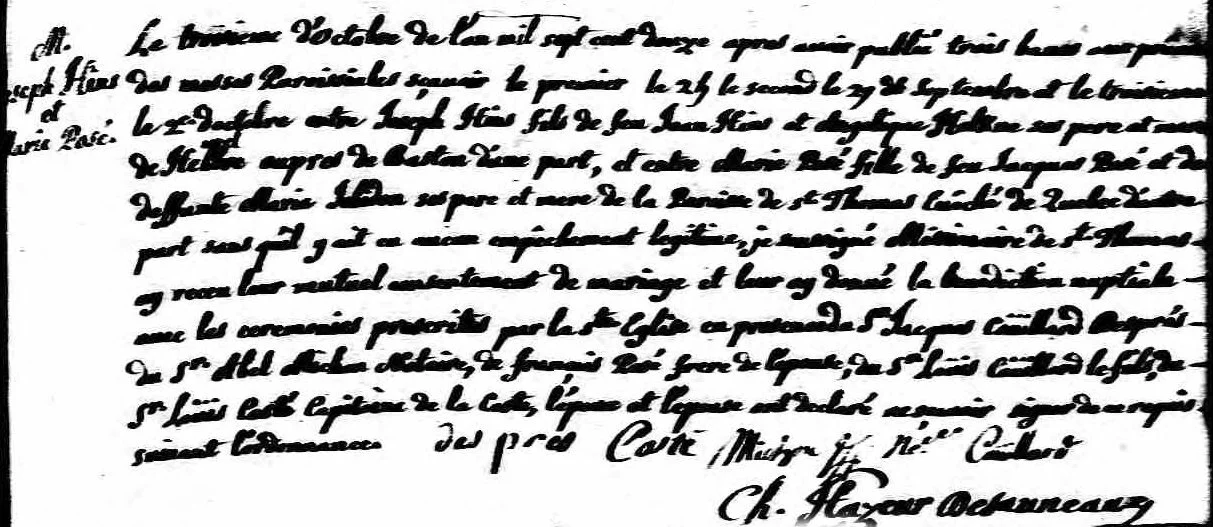 M.
Joseph Hins
et
Marie Pasé.
Le troisieme d'Octobre de l'an mil sept cent douze apres avoir publié trois bans aux
des messes Paroissiales sçavoir le premier le 25 le second le 29 de Septembre et le troisieme
le 2e d'octobre entre Joseph Hins fils de feu Jean Hins et Angelique ses pere et mere
de aupres de Baston d'une part, et entre Marie Pasé fille de feu Jacques Pasé et de
deffunte Marie ses pere et mere de la Paroisse de St Thomas Evêché de Quebec d'autre
part sans qu'il y ait eu aucun empêchement legitime, je soussigné Missionaire de St Thomas
ay receu leur mutuel consentement de mariage et leur ay donné la benediction nuptiale
avec les ceremonies prescrites par la Ste Eglise en presence de Sr Jacques Coüillard Després
du Sr Abel Michon Notaire, de françois Pasé frere de l'epouse, du Sr Loüis Coüillard le fils, de
Sr Loüis Costé Capitaine de la Coste, l'epoux et l'epouse ont declaré ne sçavoir signer de ce requis
suivant l'ordonnance. des pres Costé Michon Coüllard
Ch. Hazeur Desauneaux